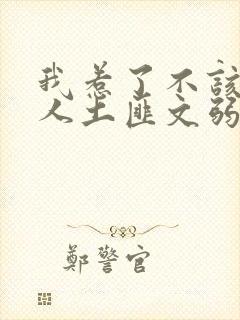 我惹了不該
人土匪文弱
鄭警官